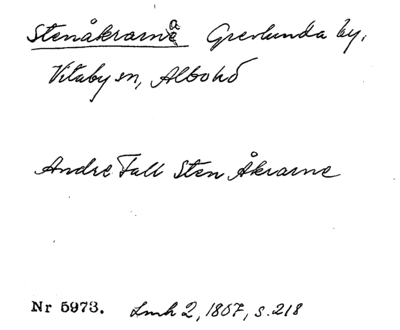 Stenåkrarna Grevlunda by,
Vitaby sn, Albo hd
Andre Fall Sten Åkrarne
Nr 5973. Lmh 2, 1857, s. 218